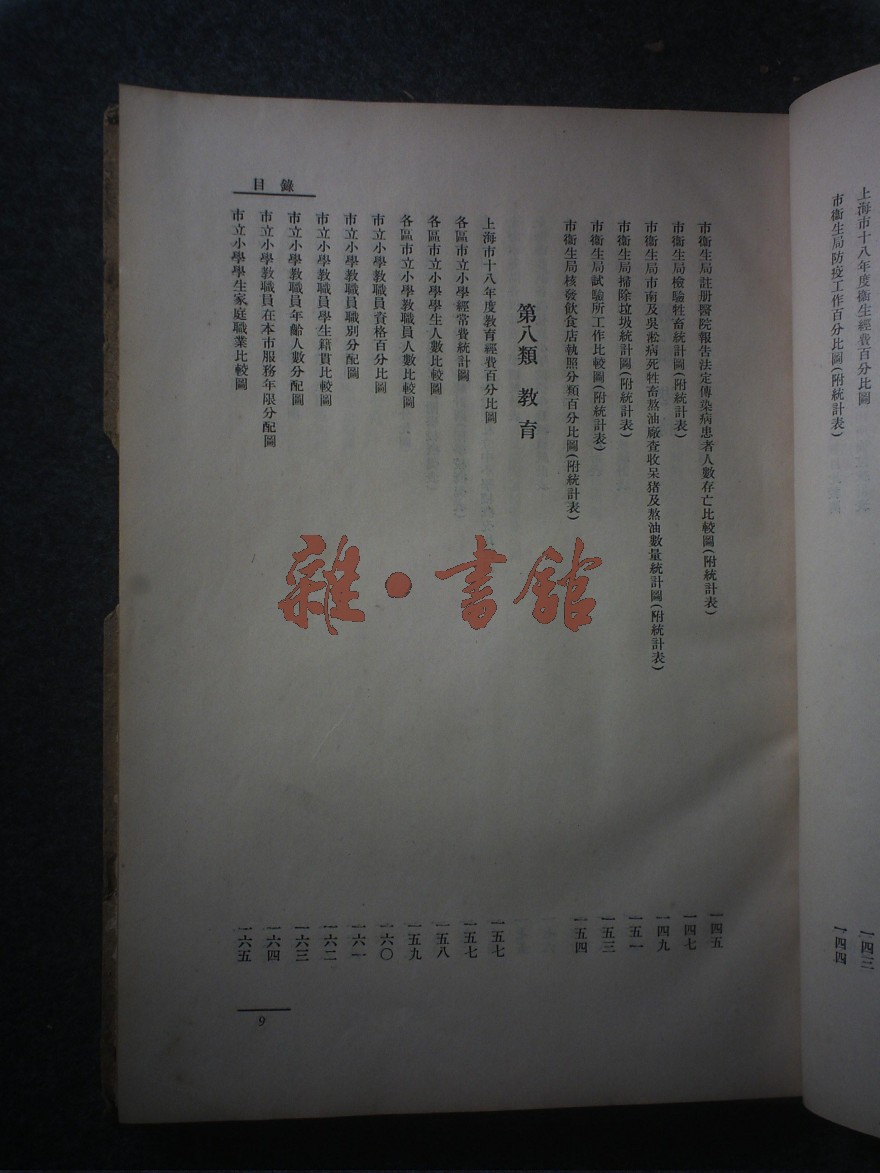 上海市十八年度衞生經費百分比圖
一四三
市衞生局防疫工作百分比圖(附統計表)
一四四
市衞生局註册醫院報告法定傳染病患者人數存亡比較圖(附統計表)
一四五
市衞生局檢驗牲畜統計圖(附統計表)
一四七
市衞生局市南及吳淞病死牲畜熬油廠查收呆猪及熬油數量統計圖(附統計表)
一四九
市衞生局掃除垃圾統計圖(附統計表)
一五一
市衞生局試驗所工作比較圖(附統計表)
一五三
市衞生局核發飲食店執照分類百分比圖(附統計表)
一五四
第八類 教育
上海市十八年度教育經費百分比圖
一五七
各區市立小學經常費統計圖
一五七
各區市立小學學生人數比較圖
一五八
各區市立小學教職員人數比較圖
一五九
市立小學教職員資格百分比圖
一六〇
市立小學教職員職別分配圖
一六一
市立小學教職員學生籍貫比較圖
一六二
市立小學教職員年齡人數分配圖
一六三
市立小學教職員在本市服務年限分配圖
一六四
市立小學學生家庭職業比較圖
一六五
目錄
9
雜·書館